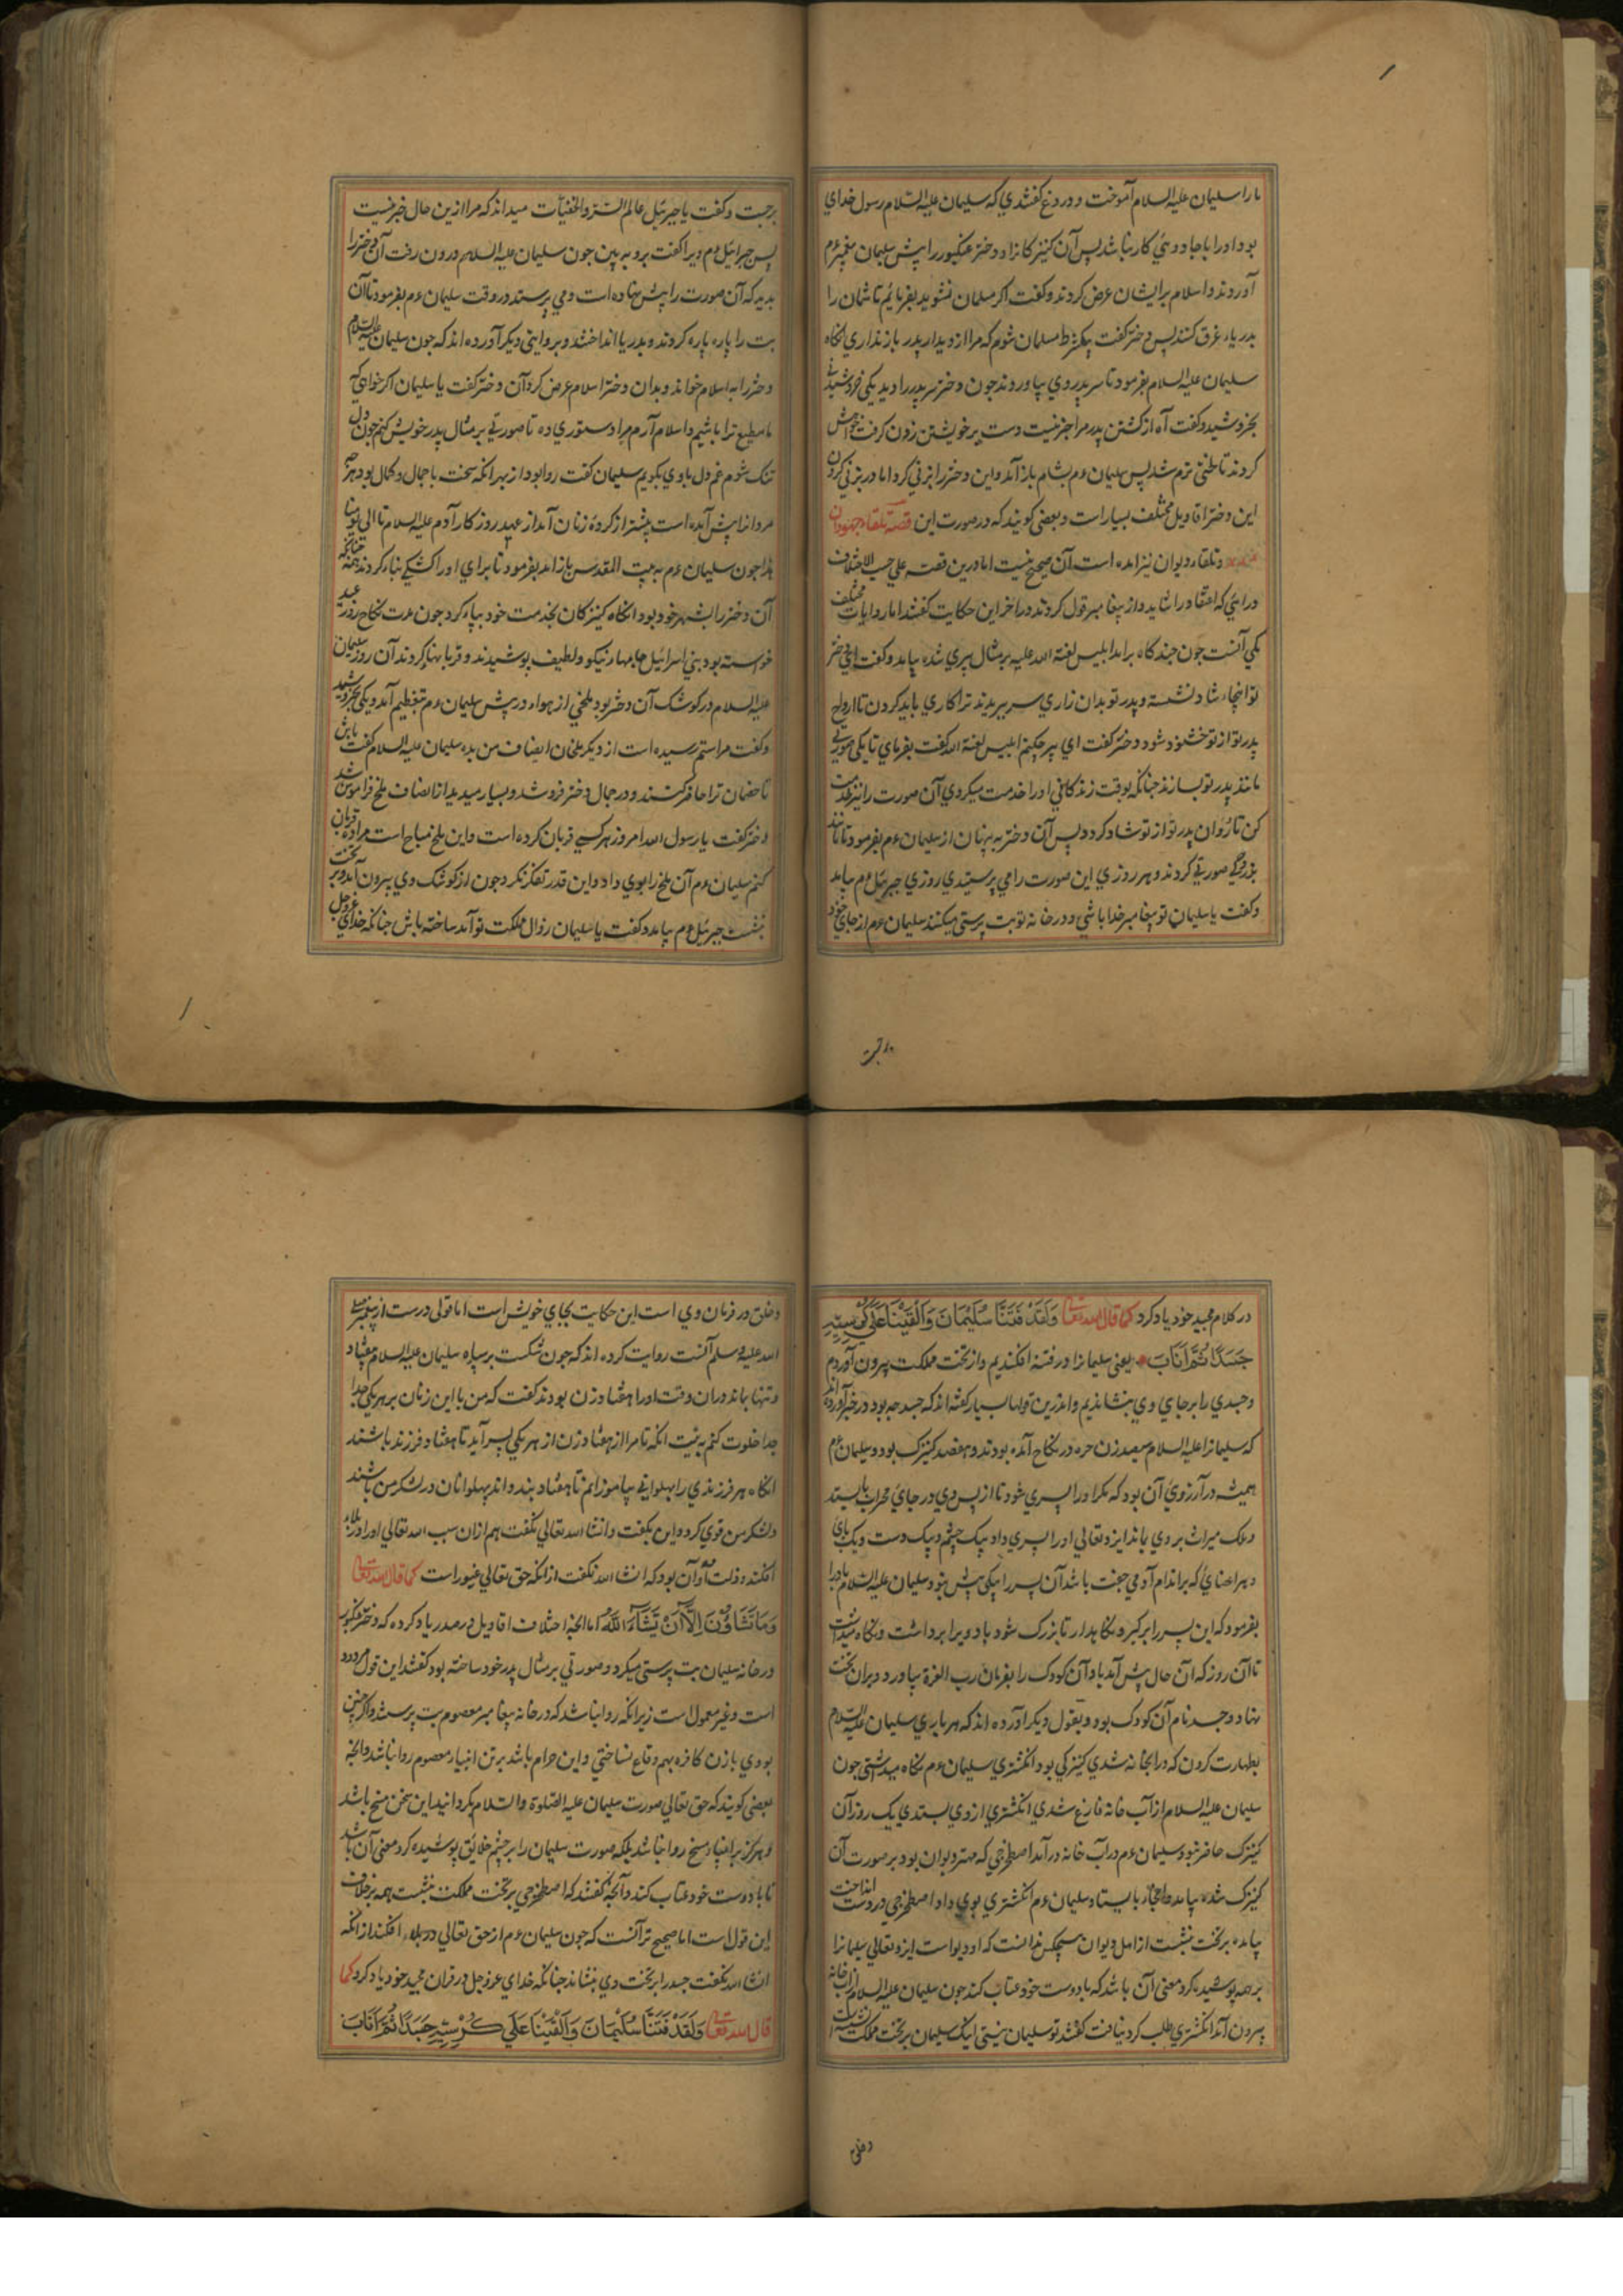 ما را سلیمان علیه السلام آموخت و دروغ گفتندی که سلیمان علیه السلام رسول خدای
بود او را با جادوئی کار نباشد پس آن کنیزکان او دختر عنکبور را پیش سلیمان پیغمبر عم
آوردند و اسلام بر ایشان عرض کردند و گفت اگر مسلمان نشوید بفرمایم تا شمان را
بدریاء غرق کنند پس دختر گفت بیکشرط مسلمان شوم که مرا از دیدار پدر باز نداری انکاه
سلیمان علیه السلام بفرمود تا سر پدر وی بیاوردند جون دختر سر پدر را دید یکی خروشید
بخروشید و گفت آه از کشتن پدر مرا جز نیست دست بر خویشتن زدن گرفت خاموش
کردند تا طنی نرم شد پس سلیمان عم بشام باز آمد و این دختر را بزنی کرد اما در بزنی کردن
این دختر اقاویل مختلف بسیار است و بعضی گویند که در صورت این قصه تلقاء جهودان
و تلقاء دیوان نیز امده است آن صحیح نیست اما درین قصه علی حسب الاختلاف
ورائی که اعتقاد را شاید و از پیغامبر قول کردند در اخر این حکایت گفتند اما روایات مختلف
یکی آنست جون چند گاه بر امد ابلیس لعنة الله علیه بر مثال پیری شده بیامد و گفت ای دختر
تو اینجا شاد نشسته و پدر تو بدان زاری سر بریدند ترا کاری باید کردن تا ارواح
پدر تو از تو خشنود شود دختر گفت ای پیر چکنم ابلیس لعنة الله گفت بفرمای تا یکی صورتی
مانند پدر تو بسازند جنانکه بوقت زندکانی او را خدمت میکردی آن صورت را نیز خدمت
کن تا روان پدر تو از تو شاد کردد پس آن دختر به پنهان از سلیمان عم بفرمود تا مانند
بزرگی صورتی کردند و هر روزی این صورت را می پرستیدی روزی جبرئیل عم بیامد
و گفت یا سلیمان تو پیغامبر خدا باشی و در خانه تو بت پرستی میکنند سلیمان عم از جای خود
برجست
برجست و گفت یا جبرئیل عالم السر والخفیات میداند که مرا ازین حال خبر نیست
پس جبرائیل عم ویرا گفت برو به بین جون سلیمان علیه السلام درون رفت آن دختر را
بدید که آن صورت را پیش نهاده است و می پرستد در وقت سلیمان عم بفرمود تا آن
بت را پاره پاره کردند و بدریا انداختند و بروایتی دیکر آورده اند که جون سلیمان علیه السلام
دختر را به اسلام خواند و بدان دختر اسلام عرض کرد آن دختر گفت یا سلیمان اکر خواهی که
ما مطیع ترا باشیم و اسلام آرم مرا دستوری ده تا صورتی بر مثال پدر خویش کنم جون دل
تنک شوم غم دل با وی بگویم سلیمان گفت روا بود از بهر انکه سخت با جمال و کمال بود هرچه
مردانرا پیش آمده است بیشتر از کردۀ زنان آمد از عهد روز کار آدم علیه السلام تا الی یومنا
هذا جون سلیمان عم به بیت المقدس باز امد بفرمود تا برای او را کشکی بناء کردند جنانکه همه
آن دختر را بشهر خود بود انکاه کنیزکان بخدمت خود بپاء کرد جون مدت نکاح روز عید
خوسته بود بنی اسرائیل جامهاء نیکو و لطیف پوشیدند و قربانها کردند آن روز سلیمان
علیه السلام در کوشک آن دختر بود ملخی از هواء در پیش سلیمان عم بتعظیم آمد و یکی بخروشید
و گفت مرا ستم رسیده است از دیکر ملخان انصاف من بده سلیمان علیه السلام گفت باش
تا خصمان ترا حاضر کنند و در جمال دختر فرو شد و بسیار میدید از انصاف ملخ فراموش شد
دختر گفت یا رسول الله امروز هر کسی قربان کرده است و این ملخ مباح است مرا ده تا قربان
کنم سلیمان عم آن ملخ را بوی داد و این قدر تفکر نکرد جون از کوشک وی بیرون آمد و بر تخت
بنشست جبرئیل عم بیامد و گفت یا سلیمان زوال مملکت تو آمد ساخته باش جنانکه خدای عز و جل
در کلام مجید خود یاد کرد کما قال الله تعالی وَلَقَدْ فَتَنَّا سُلَیْمَانَ وَاَلْقَیْنَا عَلَی کُرْسِیِّهِ
جَسَدًا ثُمَّ اَنَابَ یعنی سلیمانرا در فتنه افکندیم و از تخت مملکت بیرون آوردم
و جسدی را بر جای وی بنشاندیم و اندرین قولها بسیار گفته اند که جسد چه بود در خبر آورده اند
که سلیمانرا علیه السلام سیصد زن حره در نکاح آمده بودند و هفصد کنیزک بود و سلیمان عم
همیشه در آرزوی آن بود که مگر او را پسری شود تا از پس وی در جای محراب بایستد
و ملک میراث بر وی بماند ایزد تعالی او را پسری داد بیک چشم و بیک دست و یک پای
و هر اعضائی که بر اندام آدمی جفت باشد آن پسر را یکی پیش نبود سلیمان علیه السلام باد را
بفرمود که این پسر را برگیر و نگاه بدار تا بزرگ شود باد ویرا برداشت و نگاه میداشت
تا آن روز که آن حال پیش آمد باد آن کودک را بفرمان رب العزة بیاورد و بران تخت
نهاد و جسد نام آن کودک بود و بقول دیکر آورده اند که هر باری سلیمان علیه السلام
بطهارت کردن که در ابخانه شدی کنیزکی بود انگشتری سلیمان عم نگاه میداشتی جون
سلیمان علیه السلام از آب خانه فارغ شدی انگشتری از وی بستدی یک روز آن
کنیزک حاضر نبود سلیمان عم در آب خانه در آمد اصطخرجی که مهتر دیوان بود بر صورت آن
کنیزک شده بیامد و انجا بایستاد سلیمان عم انگشتری بوی داد اصطخرجی در دست انداخت
بیامد بر تخت بنشست از اهل دیوان هیچکس ندانست که او دیو است ایزد تعالی سلیمانرا
بر همه پوشیده کرد معنی آن باشد که با دوست خود عتاب کند جون سلیمان علیه السلام از آب خانه
بیرون آمد انگشتری طلب کرد نیافت گفتند تو سلیمان نیستی اینک سلیمان بر تخت مملکت نشسته است
و خلق
و خلق در فرمان وی است این حکایت بجای خویش است اما قولی درست از پیغمبر صلی
الله علیه و سلم آنست روایت کرده اند که جون شکست بر سپاه سلیمان علیه السلام بیفتاد
و تنها بماند دران وقت او را هفتاد زن بودند گفت که من با این زنان بر هر یکی جدا
جدا خلوت کنم به نیت انکه تا مرا از هفتاد زن از هر یکی پسر آید تا هفتاد فرزند باشند
انکاه هر فرزندی را پهلوانی بیاموزانم تا هفتاد بند و اند پهلوانان در لشکر من باشند
و لشکر من قوی کردد این بگفت و انشا الله تعالی نگفت هم از ان سبب الله تعالی او را در بلاء
افکند و ذلت او آن بود که انشا الله نگفت از انکه حق تعالی غیور است کما قال الله تعالی
وَمَا تَشَاؤُنَ اِلَّا اَنْ یَشَاءَ اللّٰهُ اما انچه اختلاف اقاویل در صدر یاد کرده که دختر عنکبور
در خانه سلیمان بت پرستی میکرد و صورتی بر مثال پدر خود ساخته بود گفتند این قول مردود
است و غیر معمول ست زیرانکه روا نباشد که در خانه پیغامبر معصوم بت پرستند و اگر چنین
بودی با زن کافره بهم وقاع نساختی و این حرام باشد بر تن انبیاء معصوم روا نباشد و انچه
بعضی گویند که حق تعالی صورت سلیمان علیه الصلوة والسلام بگردانید این سخن مسخ باشد
و هرگز بر انبیاء مسخ روا نباشد بلکه صورت سلیمان را بر چشم خلائق پوشیده کرد معنی آن باشد
تا با دوست خود عتاب کند و آنچه گفتند که اصطخرجی بر تخت مملکت بنشست همه بر خلاف
این قول است اما صحیح تر آنست که جون سلیمان عم از حق تعالی در بلاء افکند از انکه
انشا الله نگفت جسد را بر تخت وی بنشاند جنانکه خدای عز و جل در قران مجید خود یاد کرد کما
قال الله تعالی وَلَقَدْ فَتَنَّا سُلَیْمَانَ وَاَلْقَیْنَا عَلَی کُرْسِیِّهِ جَسَدًا ثُمَّ اَنَابَ